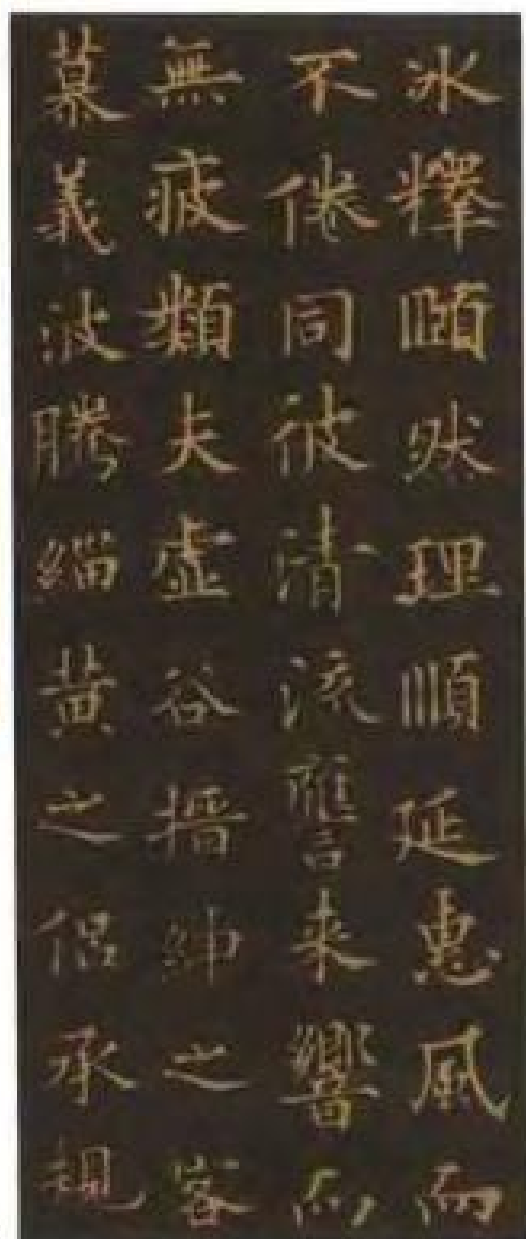 冰釋頤然理順延惠風而
不倦同彼清流譍来響而
無疲類夫虚谷搢紳之客
慕義波騰緇黄之侣承規